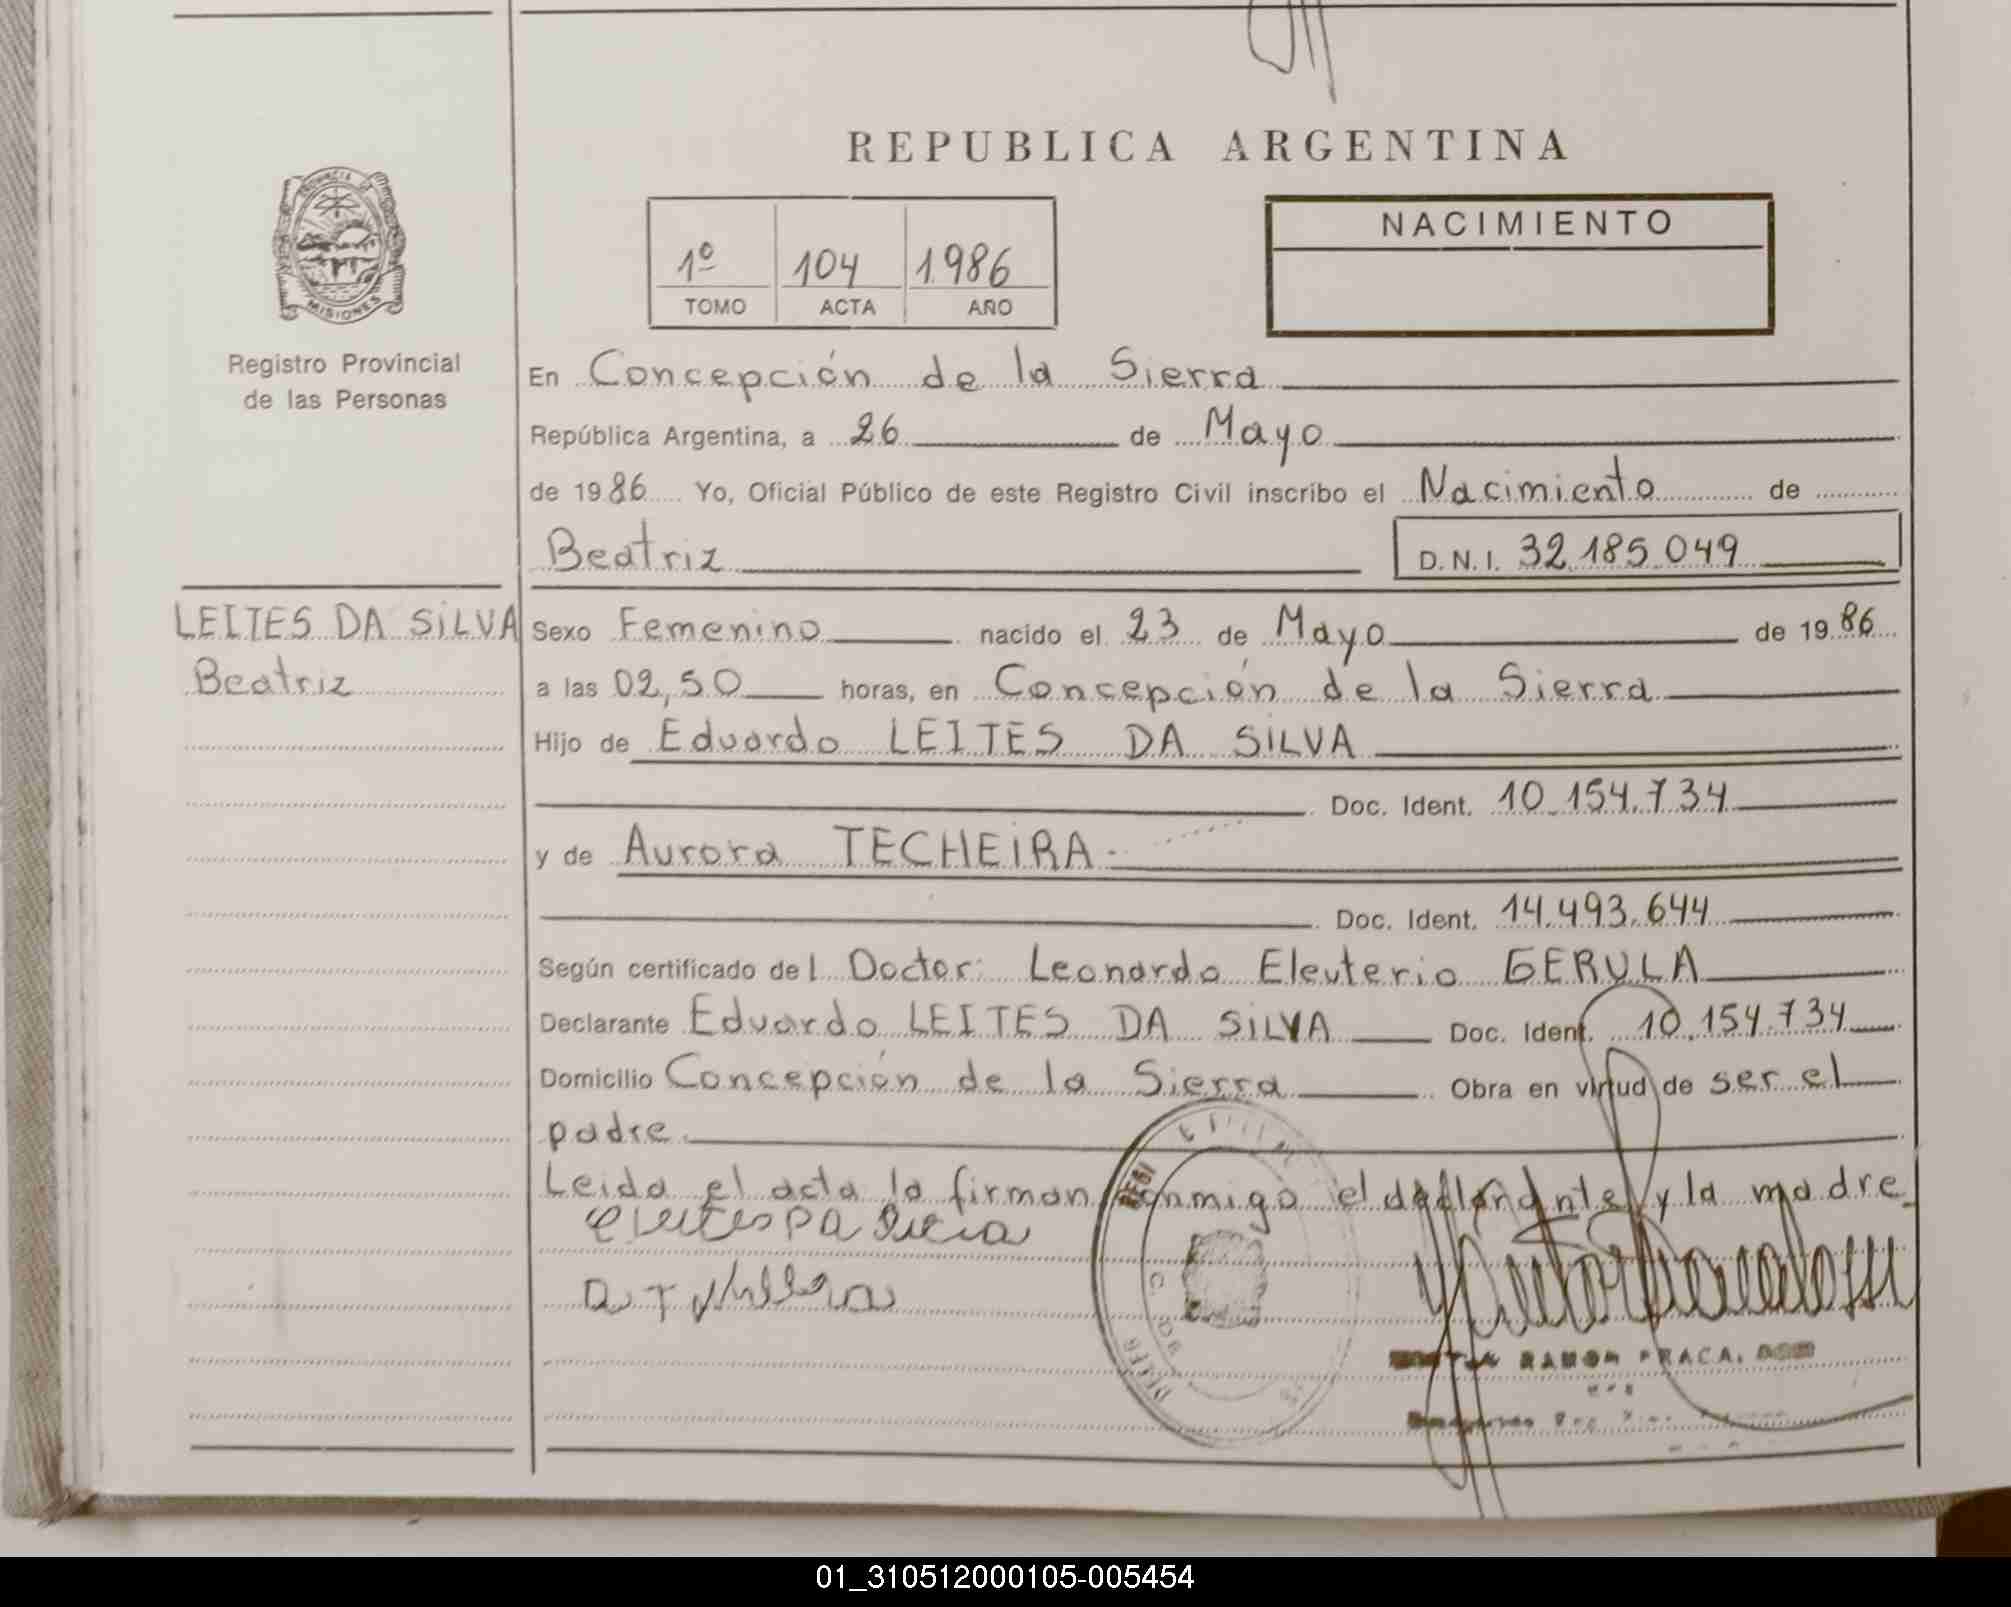 REPUBLICA ARGENTINA
PROVINCIA DE
MISIONES
Registro Provincial
de las Personas
1º 104 1986
TOMO ACTA AÑO
NACIMIENTO
En Concepción de la Sierra
República Argentina, a 26 de Mayo
de 1986 Yo, Oficial Público de este Registro Civil inscribo el Nacimiento de
Beatriz D.N.I. 32.185.049
LEITES DA SILVA
Beatriz
Sexo Femenino nacido el 23 de Mayo de 1986
a las 02,50 horas, en Concepción de la Sierra
Hijo de Eduardo LEITES DA SILVA
Doc. Ident. 10.154.734
y de Aurora TECHEIRA.
Doc. Ident. 14.493.644
Según certificado del Doctor: Leonardo Eleuterio GERULA
Declarante Eduardo LEITES DA SILVA Doc. Ident. 10.154.734
Domicilio Concepción de la Sierra Obra en virtud de ser el
padre.
Leida el acta la firman conmigo el declarante y la madre
RAMON
01_310512000105-005454